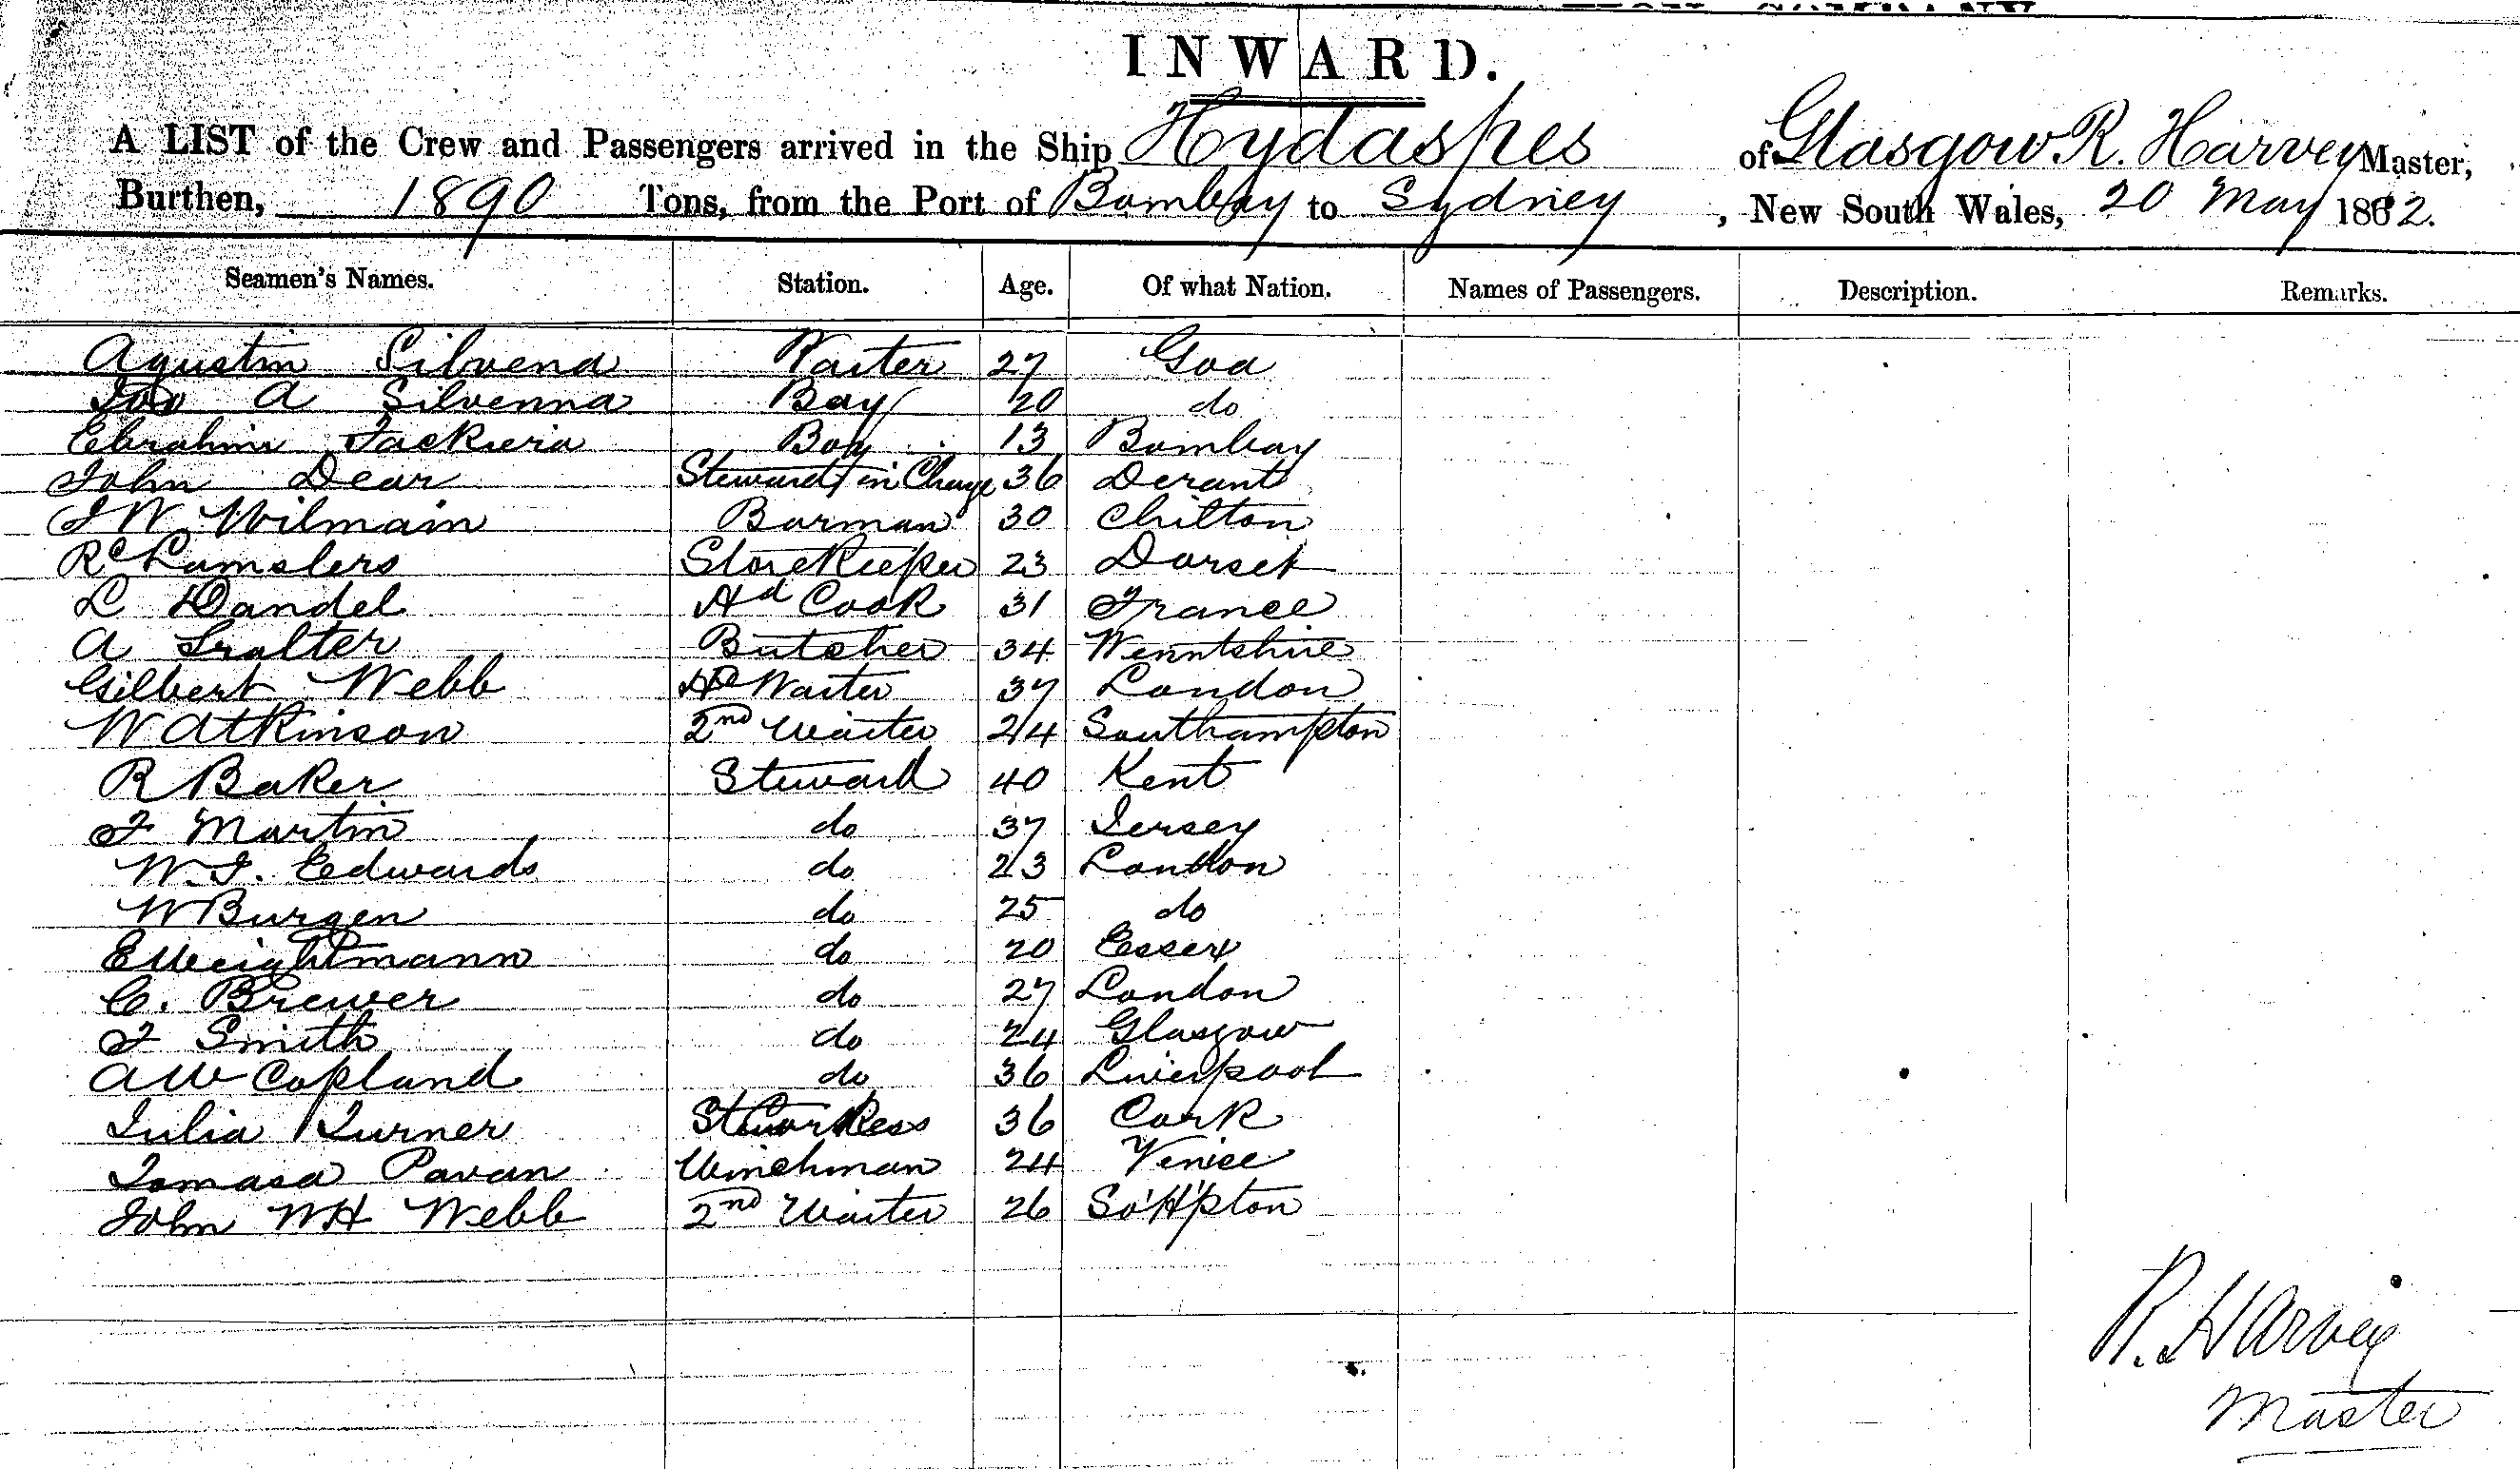 INWARD.
A LIST of the Crew and Passengers arrived in the Ship Hydaspes of Glasgow R. Harvey Master,
Burthen, 1890 Tons, from the Port of Bombay to Sydney, New South Wales, 20 May 1882.
Seamen's Names. Station. Age. Of what Nation. Names of Passengers. Description. Remarks.
Agustin Silvena Waiter 27 Goa
A Silvenna Boy 20 do
Ebrahim Boy 13 Bombay
John Dear Steward in Charge 36
J W Wilmain Barman 30 Chilton
Storekeeper 23 Dorset
L Dandel Hd Cook 31 France
A Butcher 34
Gilbert Webb Hd Waiter 37 London
W Atkinson 2nd Waiter 24 Southampton
R Baker Steward 40 Kent
F Martin do 37 Jersey
W. J. Edwards do 23 London
W Burgen do 25 do
E Weightmann do 20 Essex
C. Brewer do 27 London
F Smith do 24 Glasgow
A W Copland do 36 Liverpool
Julia Turner Stewardess 36 Cork
Tomasa Pavan Winchman 24 Venice
John W H Webb 2nd Waiter 26 So'H'pton
R. Harvey
Master